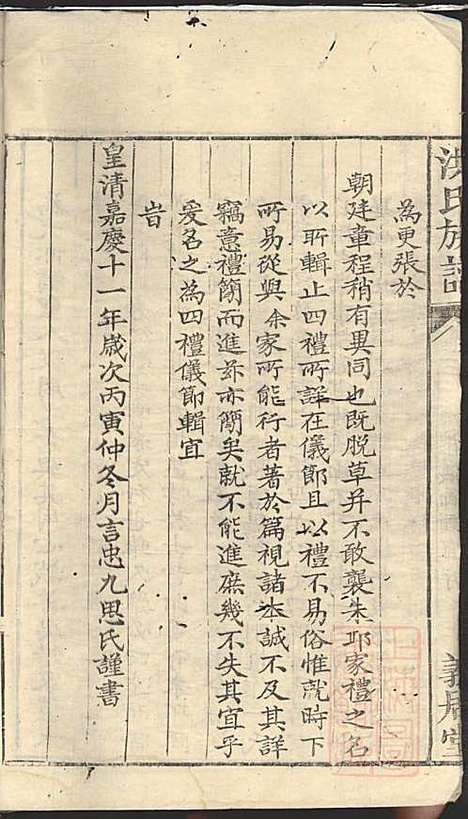 洪氏族譜
為更張於
朝廷章程稍有異同也既脱草并不敢襲朱耶家禮之名
以所輯止四禮所詳在儀節且以禮不易俗惟就時下
所易從與余家所能行者著於篇視諸本誠不及其詳
竊意禮簡而進茆亦簡矣就不能進庶幾不失其宜乎
爰名之為四禮儀節輯宜
旹
皇清嘉慶十一年歲次丙寅仲冬月言忠九思氏謹書
義居堂